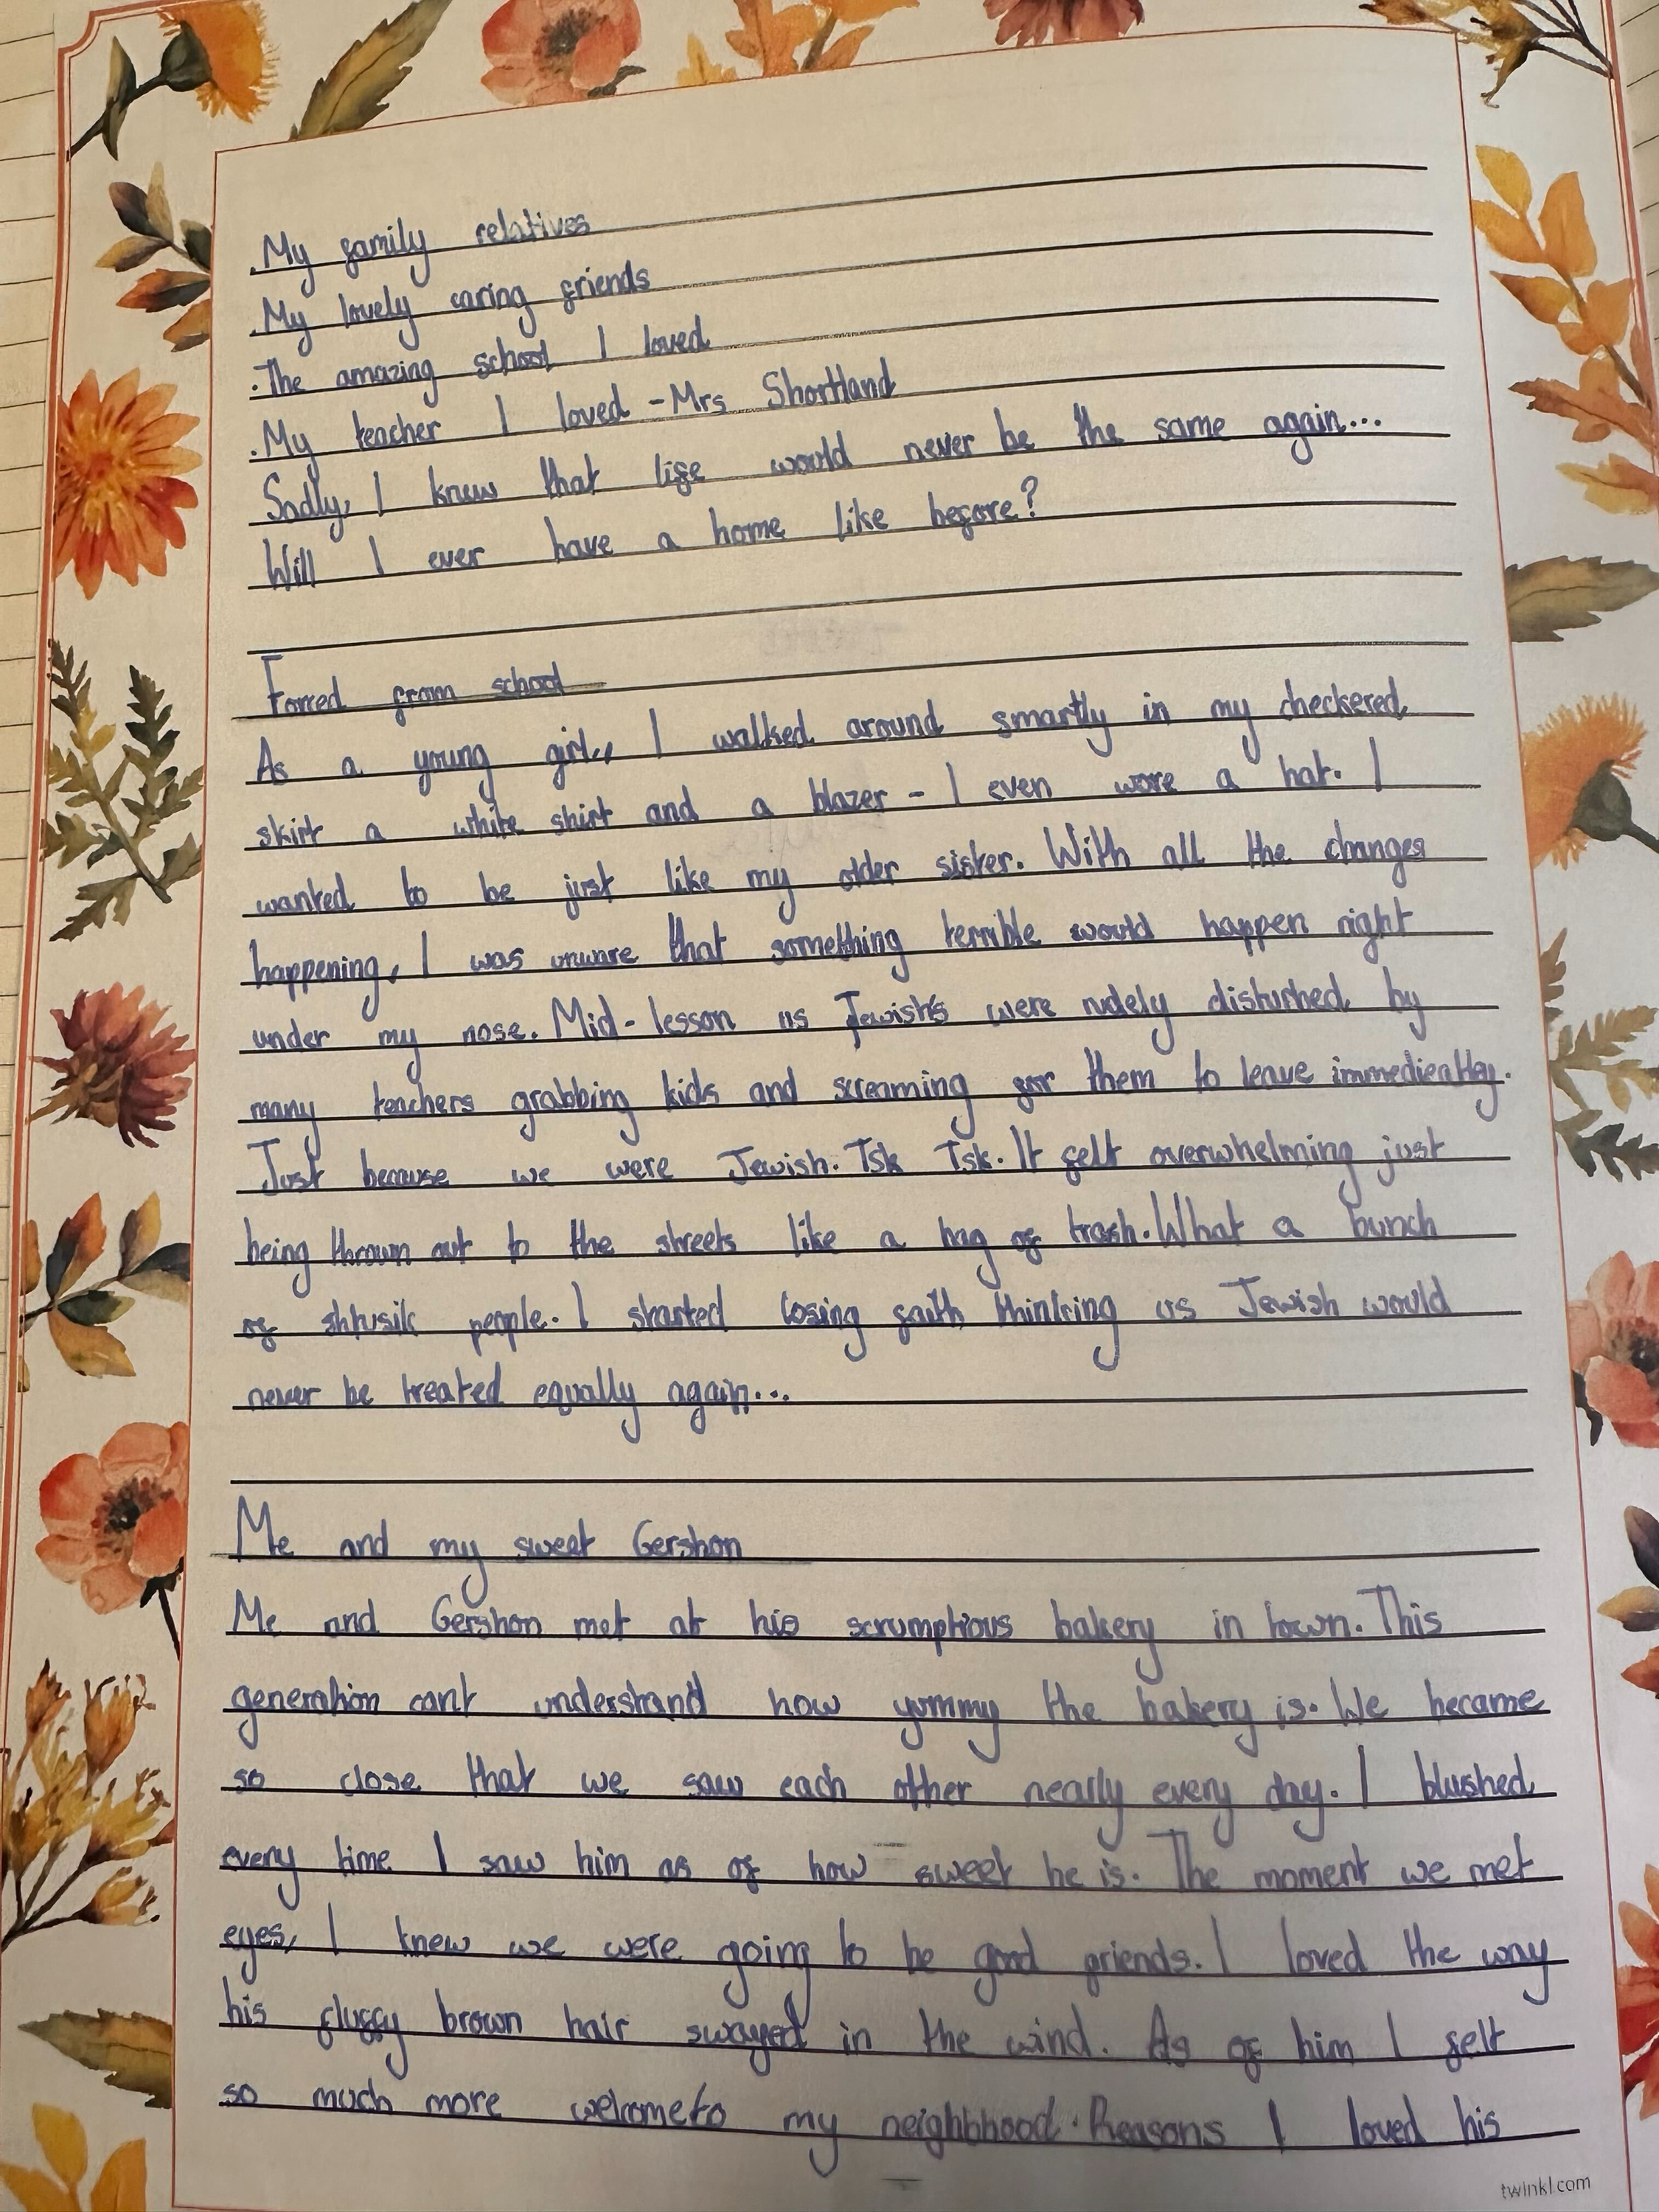 .My family relatives
.My lovely caring friends
.The amazing school I loved
.My teacher I loved -Mrs Shortland
Sadly, I knew that life would never be the same again...
Will I ever have a home like before?
Forced from school
As a young girl,, I walked around smartly in my checkered
skirt a white shirt and a blazer - I even wore a hat. I
wanted to be just like my older sister. With all the changes
happening, I was unware that something terrible would happen right
under my nose. Mid-lesson us Jewish's were rudely disturbed by
many teachers grabbing kids and screaming for them to leave immedieatley.
Just because we were Jewish. Tsk Tsk. It felt overwhelming just
being thrown out to the streets like a bag of trash. What a bunch
of people. I started losing faith thinking us Jewish would
never be treated equally again...
Me and my sweet Gershon
Me and Gershon met at his scrumptious bakery in town. This
generation cant understand how yummy the bakery is. We became
so close that we saw each other nearly every day. I blushed
every time I saw him as of how sweet he is. The moment we met
eyes, I knew we were going to be good friends. I loved the way
his fluffy brown hair swayed in the wind. As of him I felt
so much more welcome to my neighbhood. Reasons I loved his
twinkl.com